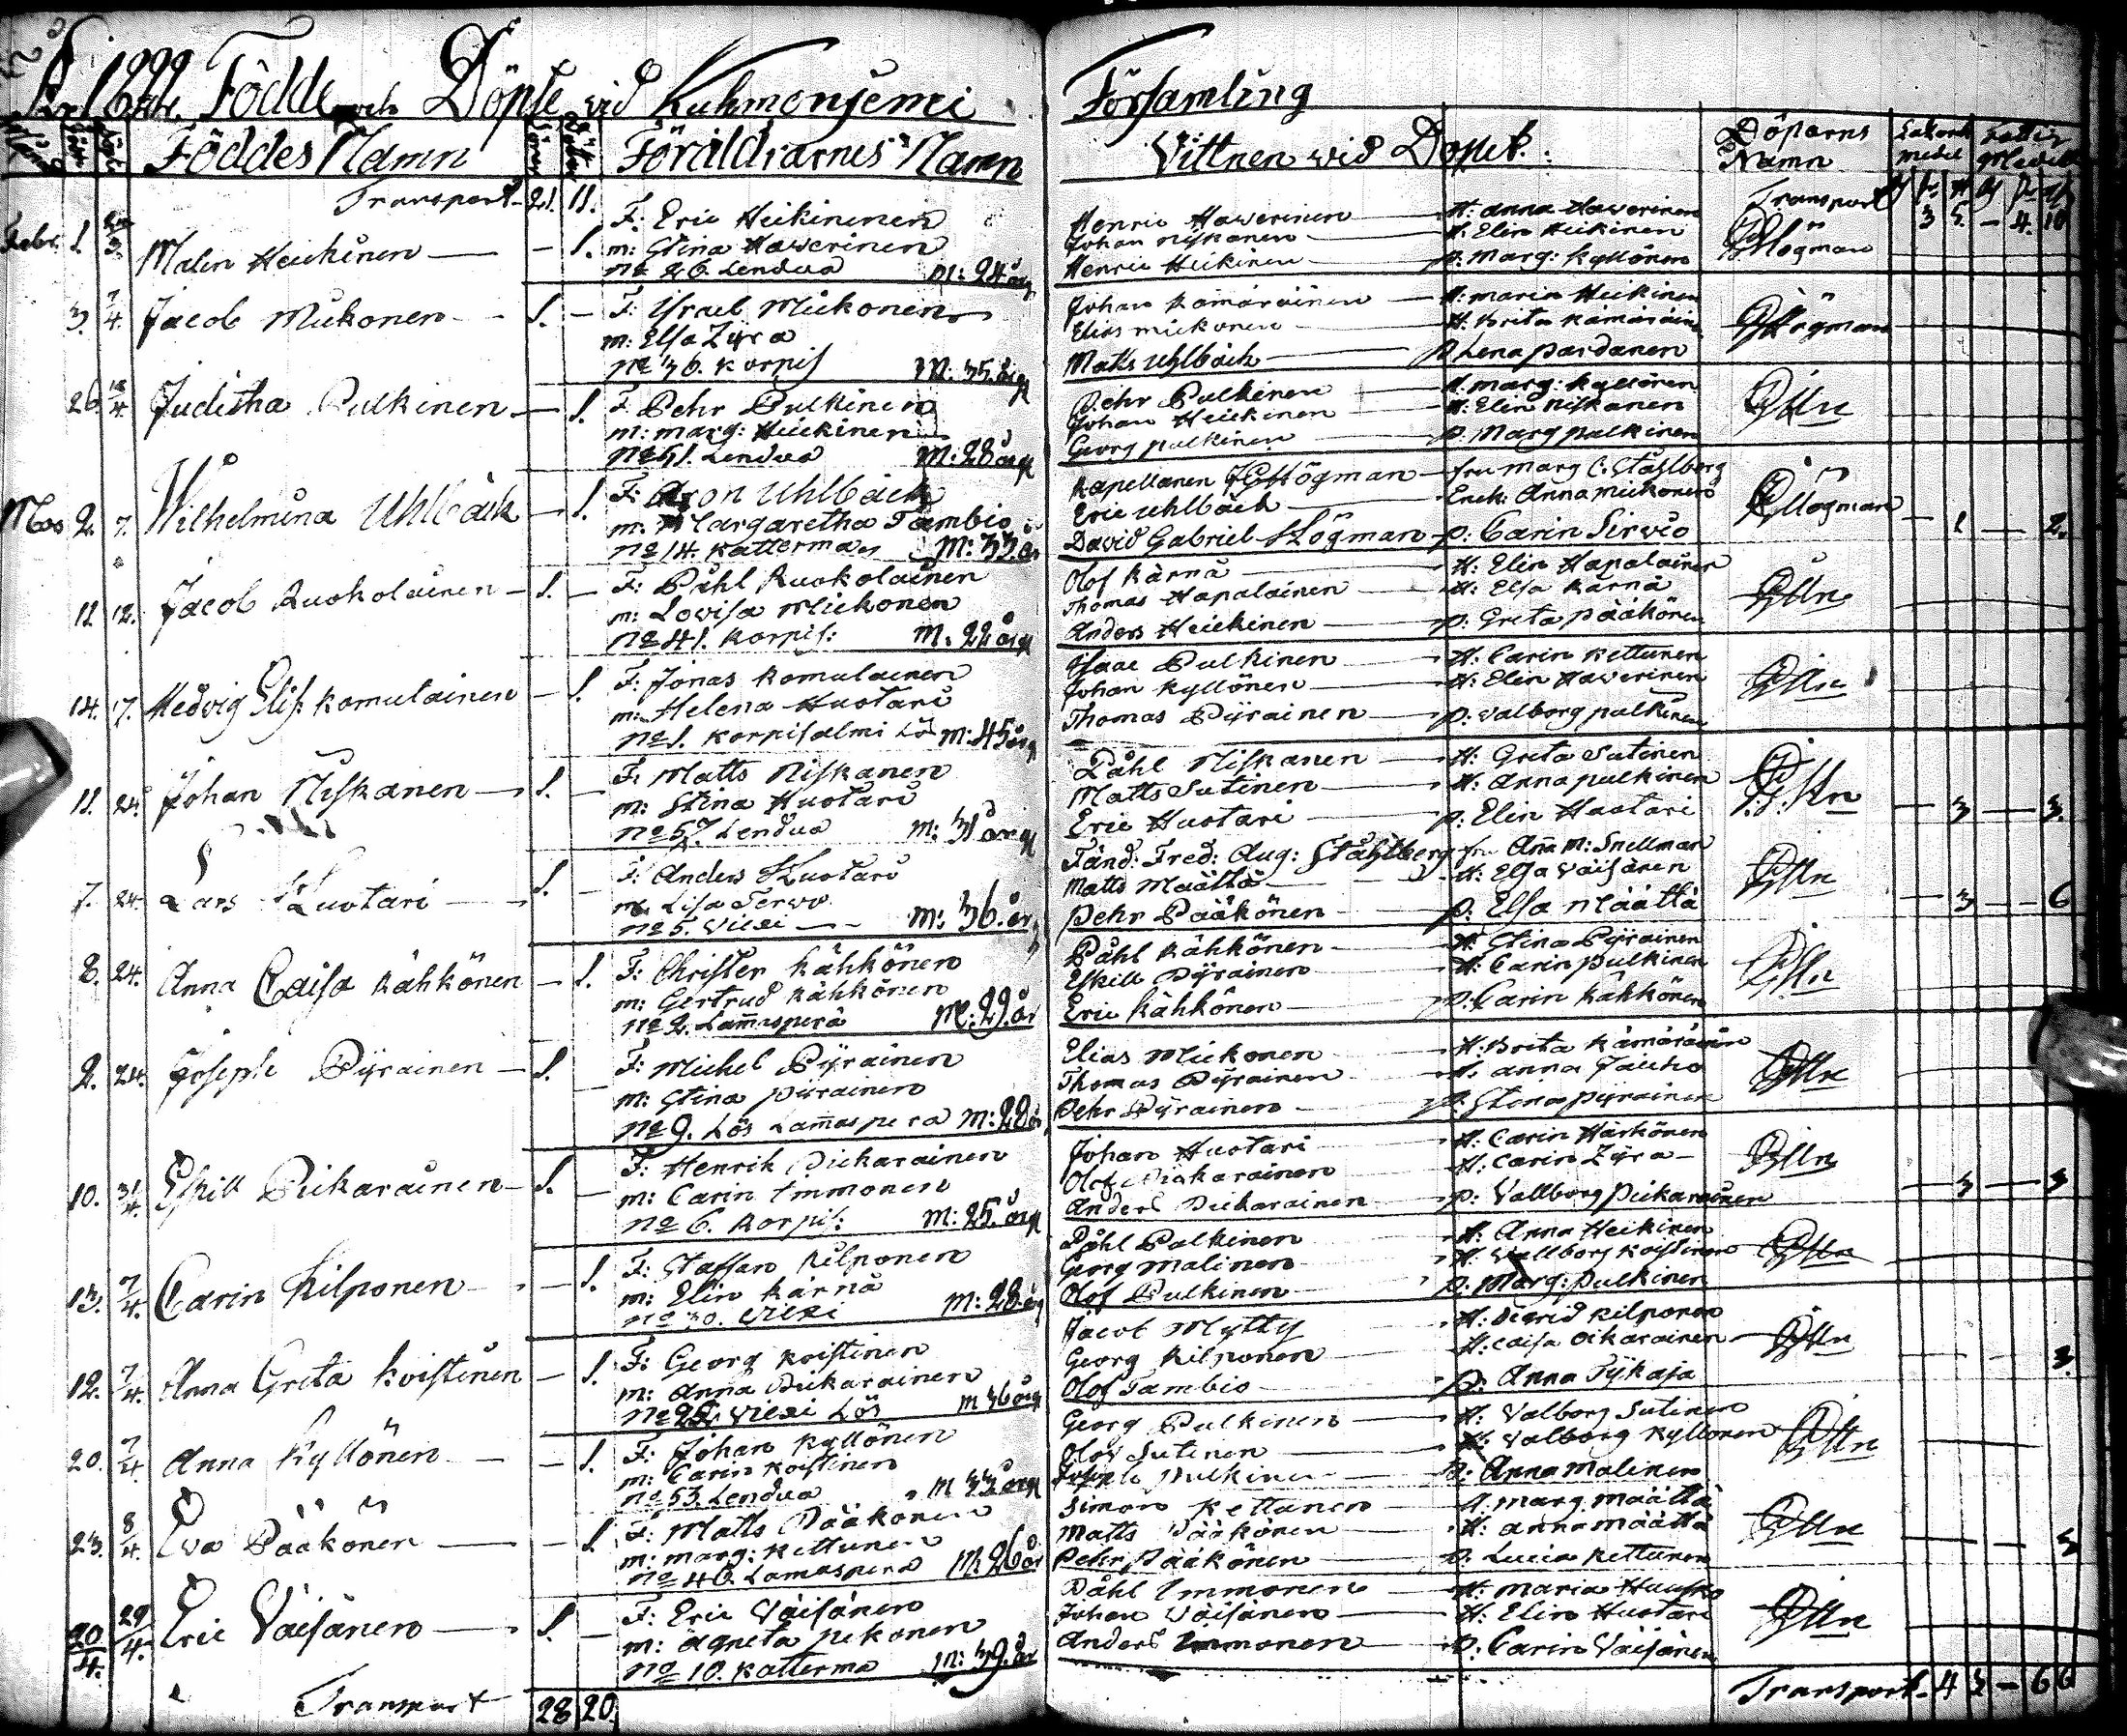 Födde och Döpte vid Kuhmonjemi Församling
Föddes Namn Föräldrarnes Namn Vittnen vid Dopet. Döparns Namn
Transport 21. 11. Transport 3 5. - 4. 10
Febr. 1. 3. Malin Heickinen — - 1.
F: Eric Heikininen
m: Stina Hawerinen
No 26. Lendua m: 24 årg
Henric Hawerinen — H: Anna Hawerinen
Johan Niskanen — H: Elin Heikinen
Henric Heikinen — p: Marg: Kyllönen
3. 7/4. Jacob Mickonen - 1. -
F: Israel Mickonen
m: Elsa Zyra
No 36. Korpis M: 35. årg
Johan Kämäräinen — H: Maria Heikinen
Elias Mickonen — H: Brita Kämäräinen
Matts Uhlbäck — p Lena Pardanen
26 /4. Juditha Pulkinen — 1.
F: Pehr Pulkinen
m: Marg: Heickinen
No 51. Lendua M: 28 årg
Pehr Pulkinen — H. Marg: Kyllönen
Johan Heickinen — H: Elin Niskanen
Georg Pulkinen — p. Marg Pulkinen
Mars 2. 7. Wilhelmina Uhlbäck — 1.
F: Aron Uhlbäck
m: Margaretha Tambio
No 14. Katterma M: 33. år
Kapellanen Högman — fru Marg C: Ståhlberg
Eric Uhlbäck — Enck: Anna Mickonen
David Gabriel Högman — p: Carin Sirviö
— 1 — 2.
11 12. Jacob Ruokolainen — 1. —
F: Påhl Ruokolainen
m: Lovisa Mickonen
No 41. Korpis: M: 22 årg
Olof Kärnä — H: Elin Hapalainen
Thomas Hapalainen — H: Elsa Kärnä
Anders Heickinen — p: Greta Pääkönen
14. 17. Hedvig Elis: Komulainen — 1.
F: Jonas Komulainen
m: Helena Huotari
No 1. Korpisalmi Lö m: 45 årg
Isaac Pulkinen — H: Carin Kettunen
Johan Kyllönen — H: Elin Hawerinen
Thomas Pÿrainen — p: Walborg Pulkinen
11. 24. Johan Niskanen — 1. —
F: Matts Niskanen
m: Stina Huotari
No 57. Lendua m: 31 årg
Påhl Niskanen — H: Greta Sutinen
Matts Sutinen — H: Anna Pulkinen
Eric Huotari — p: Elin Huotari
— 3 — 3.
7. 24. Lars Huotari — 1. —
F: Anders Huotari
m. Lisa Terwo
No 5. Viexi — M: 36. år
Fänd: Fred: Aug: Ståhlberg fru Ann M: Snellman
Matts Määttä — H: Elsa Väisänen
Pehr Pääkönen — p: Elsa Määttä
— 3 — 6
8. 24. Anna Caisa Kähkönen — 1.
F: Christer Kähkönen
m: Gertrud Kähkönen
No 2. Lammasperä M: 29. år
Påhl Kähkönen — H: Stina Pÿrainen
Eskill Pÿrainen — H: Carin Pulkinen
Eric Kähkönen — p: Carin Kähkönen
2. 24. Joseph Pÿrainen — 1. —
F: Michel Pÿrainen
m: Stina Pÿrainen
No 9. Lös Lammaspera M: 28 år
Elias Mickonen — H: Brita Kämäräinen
Thomas Pÿrainen — H. Anna Jauho
Pehr Pÿrainen — p: Stina Pyrainen
10. 31/4. Eskill Pickarainen — 1. —
F: Henrik Pickarainen
m: Carin Immonen
No 6. Korpis: M: 25. årg
Johan Huotari — H: Carin Härkönen
Olof Pickarainen — H: Carin Zyra
Anders Pickarainen — p: Vallborg Pickarainen
— 3 — 3
13. 7/4. Carin Kilponen — 1.
F: Staffan Kilponen
m: Elin Kärnä
No 30. Viexi M: 28. årg
Påhl Pulkinen — H: Anna Heikinen
Georg Malinen — H: Wallborg Koistinen
Olof Pulkinen — p: Marg: Pulkinen
12. 7/4. Anna Greta Koistinen — 1.
F: Georg Koistinen
m: Anna Pickarainen
No 25. Viexi Lös m 36 årg
Jacob Mytty — H: Kilponen
Georg Kilponen — H: Caisa Oikarainen
Olof Tambio — p: Anna Tykäjä
— 3.
20. 7/4 Anna Kyllönen — 1.
F: Johan Kyllönen
m: Carin Koistinen
No 53. Lendua M 33 årg
Georg Pulkinen — H: Valborg Sutinen
Olov Sutinen — H: Valborg Kyllonen
Joseph Pulkinen — p: Anna Malinen
23. 8/4. Eva Pääkönen — 1
F: Matts Pääkonen
m: Marg: Kettunen
No 40. Lamaspera M 26 år
Simon Kettunen — H Marg. Määttä
Matts Pääkönen — H: Anna Määttä
Pehr Pääkönen — p. Lucia Kettunen
— 3
20/4. 29/4. Eric Väisänen — 1. —
F: Eric Väisänen
m: Agneta Pekonen
No 10. Katterma M: 39. år
Påhl Immonen — H: Maria
Johan Väisänen — H: Elin Huotari
Anders Immonen — p. Carin Väisänen
Transport 28 20. Transport. 4 3 - 6 6